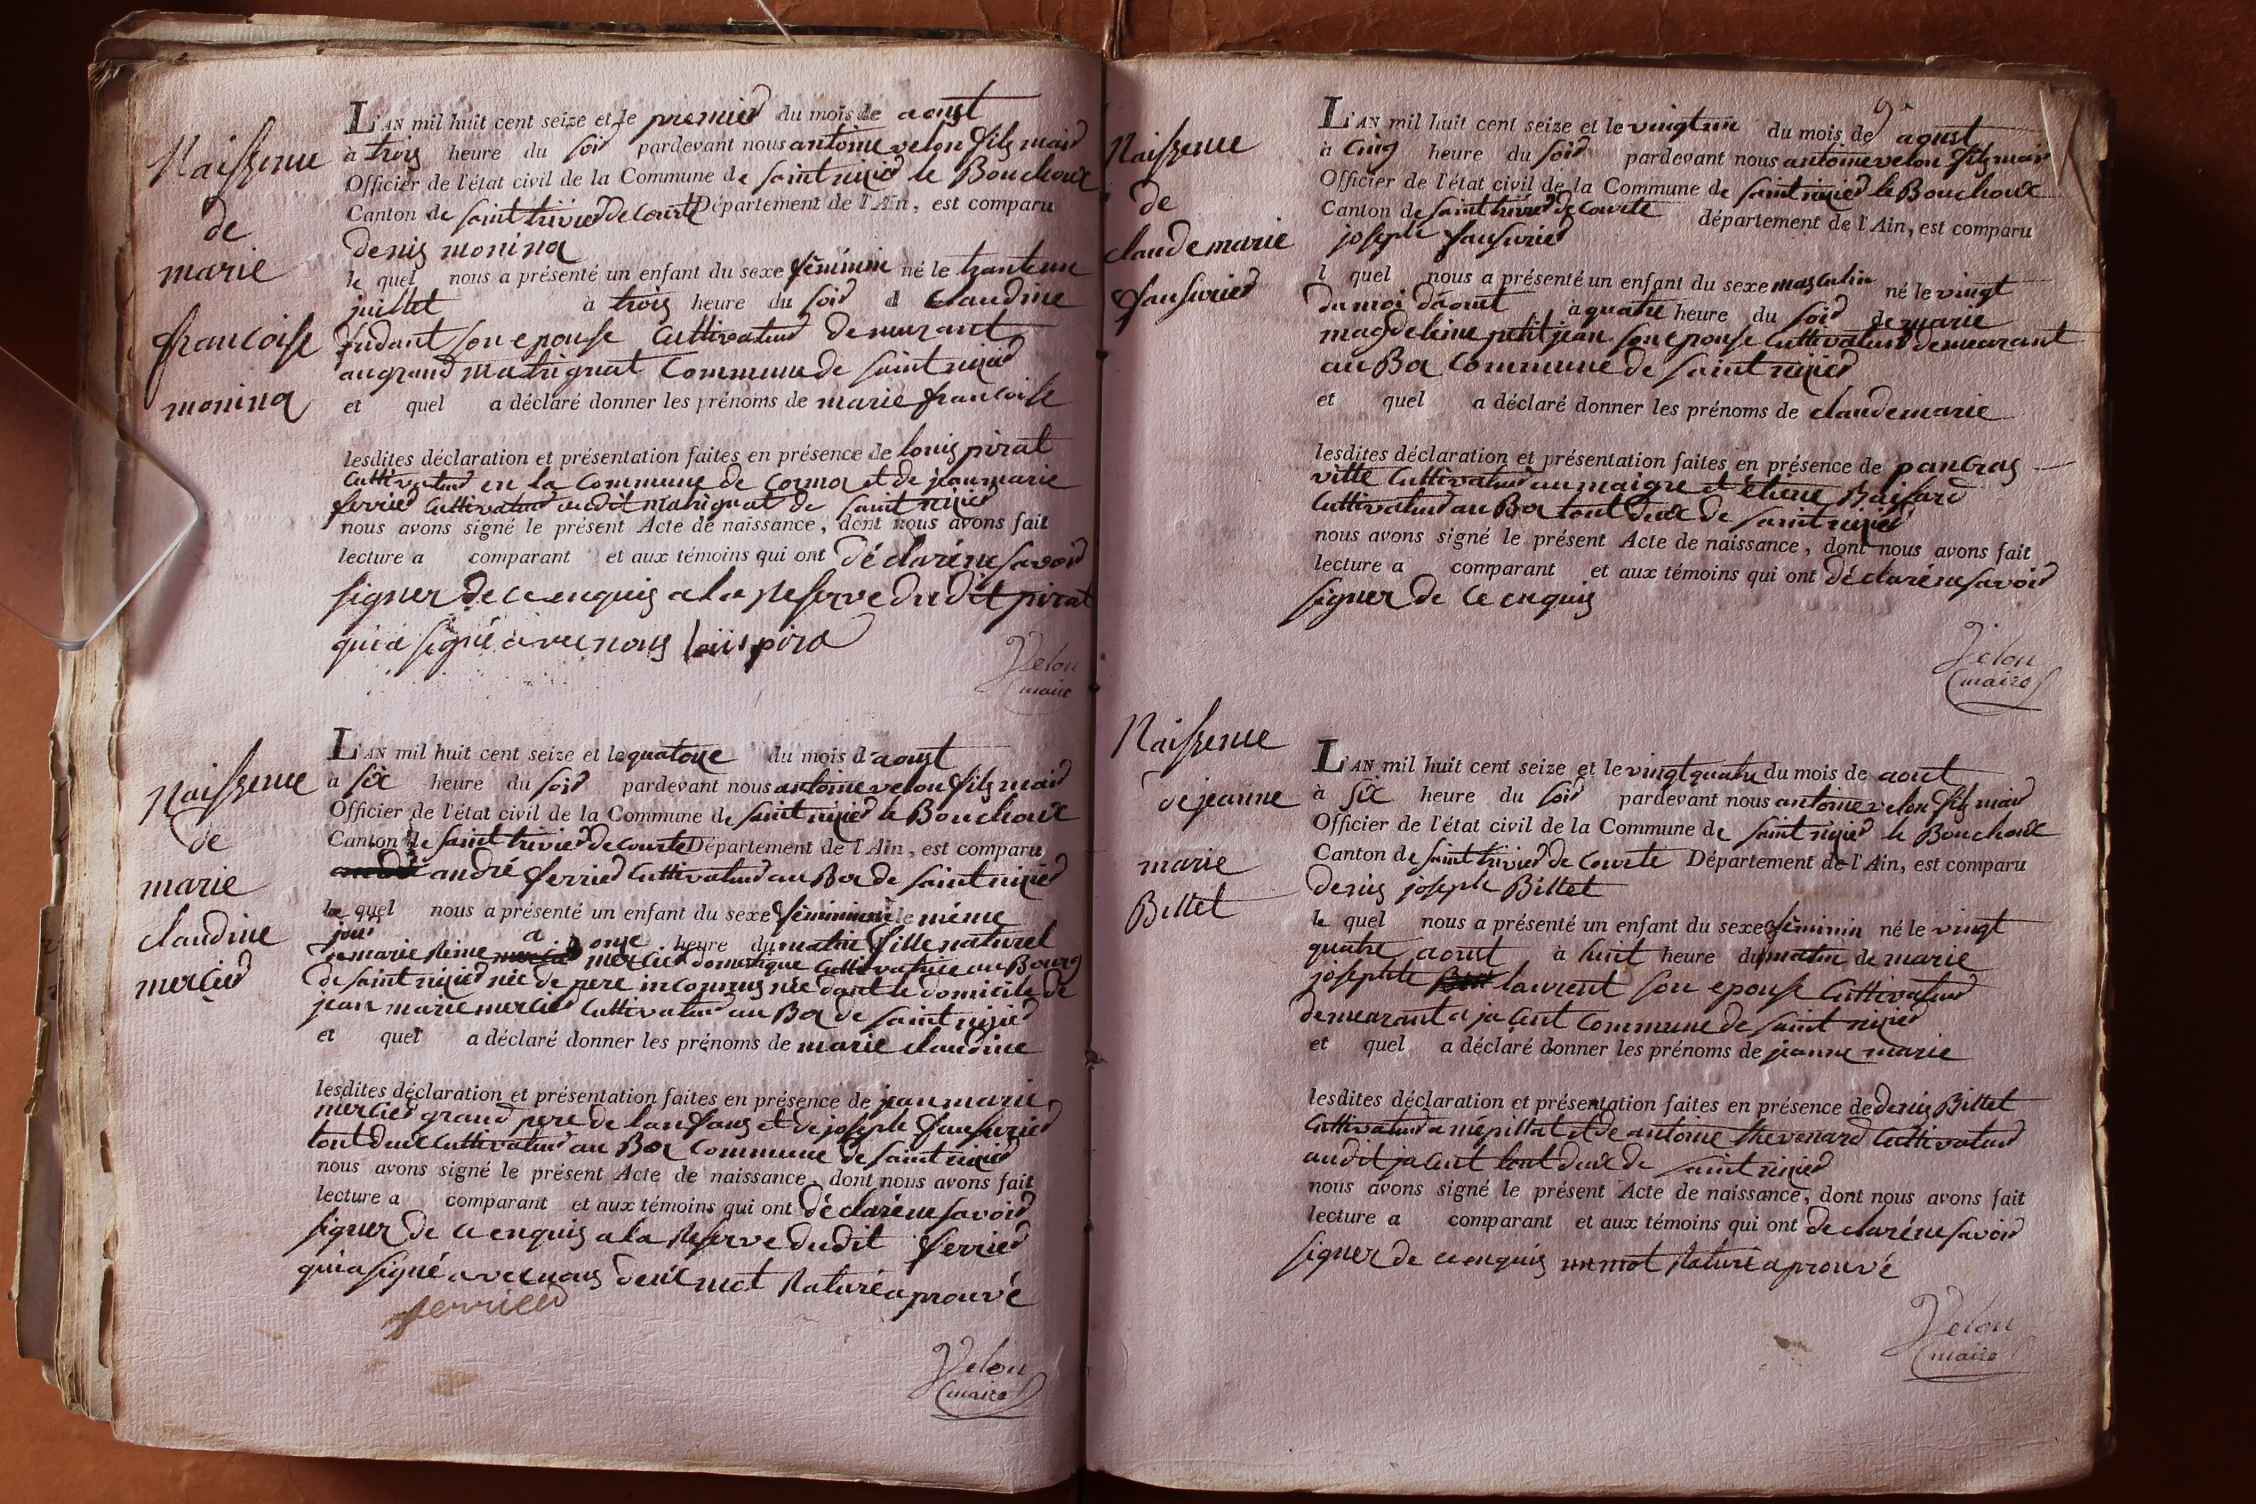 Naissence
de
marie
francoise
monina
L'AN mil huit cent seize et le premier du mois de aoust
à trois heure du soir pardevant nous antoine velon fils maire
Officier de l'état civil de la Commune de saint nizier le Bouchoux
Canton de saint trivier de Courte Département de l'Ain, est comparu
denis monina
le quel nous a présenté un enfant du sexe féminin né le trante un
juillet à trois heure du soir d claudine
fudant son epouse Cultivateur demurant
au grand matrignat Commune de saint nizier
et quel a déclaré donner les prénoms de marie francoise
lesdites déclaration et présentation faites en présence de louis pirat
Cultivateur en la Commune de Cormoz et de jean marie
ferrier Cultivateur audit matrignat de saint nizier
nous avons signé le présent Acte de naissance, dont nous avons fait
lecture a comparant et aux témoins qui ont déclaré ne savoir
signer de ce enquis a la Reserve dudit pirat
qui a signé avec nous louis pira
Velon
maire
Naissence
de
marie
claudine
mercier
L'AN mil huit cent seize et le quatorze du mois d'aoust
à six heure du soir pardevant nous antoine velon fils maire
Officier de l'état civil de la Commune de saint nizier le Bouchoux
Canton de saint trivier de Courte Département de l'Ain, est comparu
andré ferrier Cultivateur au Boz de saint nizier
le quel nous a présenté un enfant du sexe féminin né le même
jour a onze heure du matin fille naturel
de marie Reine mercier domestique Cultivatrice au Bourg
de saint nizier née de pere inconnus née dant le domicile de
jean marie mercier Cultivateur au Boz de saint nizier
et quel a déclaré donner les prénoms de marie claudine
lesdites déclaration et présentation faites en présence de jean marie
mercier grand pere de lanfans et de joseph faufurier
tout deux Cultivateur au Boz Commune de saint nizier
nous avons signé le présent Acte de naissance, dont nous avons fait
lecture a comparant et aux témoins qui ont déclaré ne savoir
signer de ce enquis a la Reserve dudit ferrier
qui a signé avec nous deux mot Raturé aprouvé
ferrier
Velon
maire
9
Naissence
de
claude marie
faufurier
L'AN mil huit cent seize et le vingt un du mois de aoust
à Cinq heure du soir pardevant nous antoine velon fils maire
Officier de l'état civil de la Commune de saint nizier le Bouchoux
Canton de saint trivier de Courte département de l'Ain, est comparu
joseph faufurier
l quel nous a présenté un enfant du sexe masculin né le vingt
du moi d'aout à quatre heure du soir de marie
magdeleine petit jean son epouse Cultivateur demeurant
au Boz Commune de saint nizier
et quel a déclaré donner les prénoms de claude marie
lesdites déclaration et présentation faites en présence de pancras
vitte Cultivateur au maigre et étiene Baisard
Cultivateur au Boz tout deux de saint nizier
nous avons signé le présent Acte de naissance, dont nous avons fait
lecture a comparant et aux témoins qui ont déclaré ne savoir
signer de ce enquis
Velon
maire
Naissence
de jeanne
marie
Billet
L'AN mil huit cent seize et le vingt quatre du mois de aout
à six heure du soir pardevant nous antoine velon fils maire
Officier de l'état civil de la Commune de saint nizier le Bouchoux
Canton de saint trivier de Courte Département de l'Ain, est comparu
denis joseph Billet
le quel nous a présenté un enfant du sexe féminin né le vingt
quatre aout à huit heure du matin de marie
josephte laurent son epouse Cultivateur
demeurant a jacent Commune de saint nizier
et quel a déclaré donner les prénoms de jeanne marie
lesdites déclaration et présentation faites en présence de denis Billet
Cultivateur a mépillat et de antoine thevenard Cultivateur
audit jacent tout deux de saint nizier
nous avons signé le présent Acte de naissance, dont nous avons fait
lecture a comparant et aux témoins qui ont declaré ne savoir
signer de ce enquis un mot Raturé aprouvé
Velon
maire